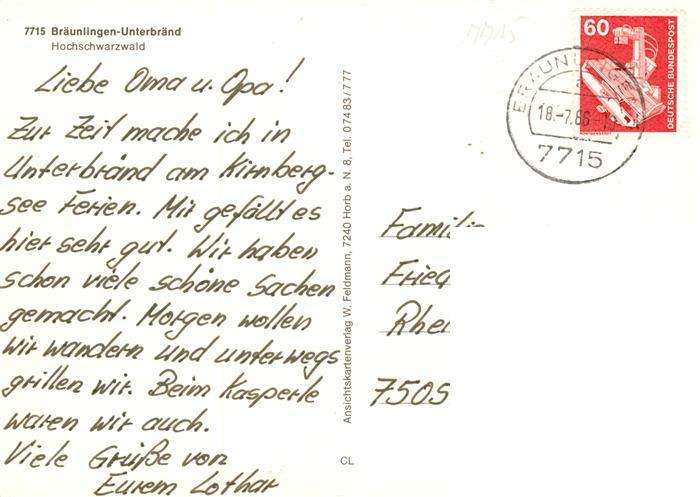 7715 Bräunlingen-Unterbränd
Hochschwarzwald
Liebe Oma u. Opa!
Zur Zeit mache ich in
Unterbränd am Kirnberg-
see Ferien. Mir gefällt es
hier sehr gut. Wir haben
schon viele schöne Sachen
gemacht. Morgen wollen
wir wandern und unterwegs
grillen wir. Beim Kasperle
waren wir auch.
Viele Grüße von
Eurem Lothar
Ansichtskartenverlag W. Feldmann, 7240 Horb a. N. 8, Tel. 07483/777
CL
60
DEUTSCHE BUNDESPOST
18.-7.86
7715
7505